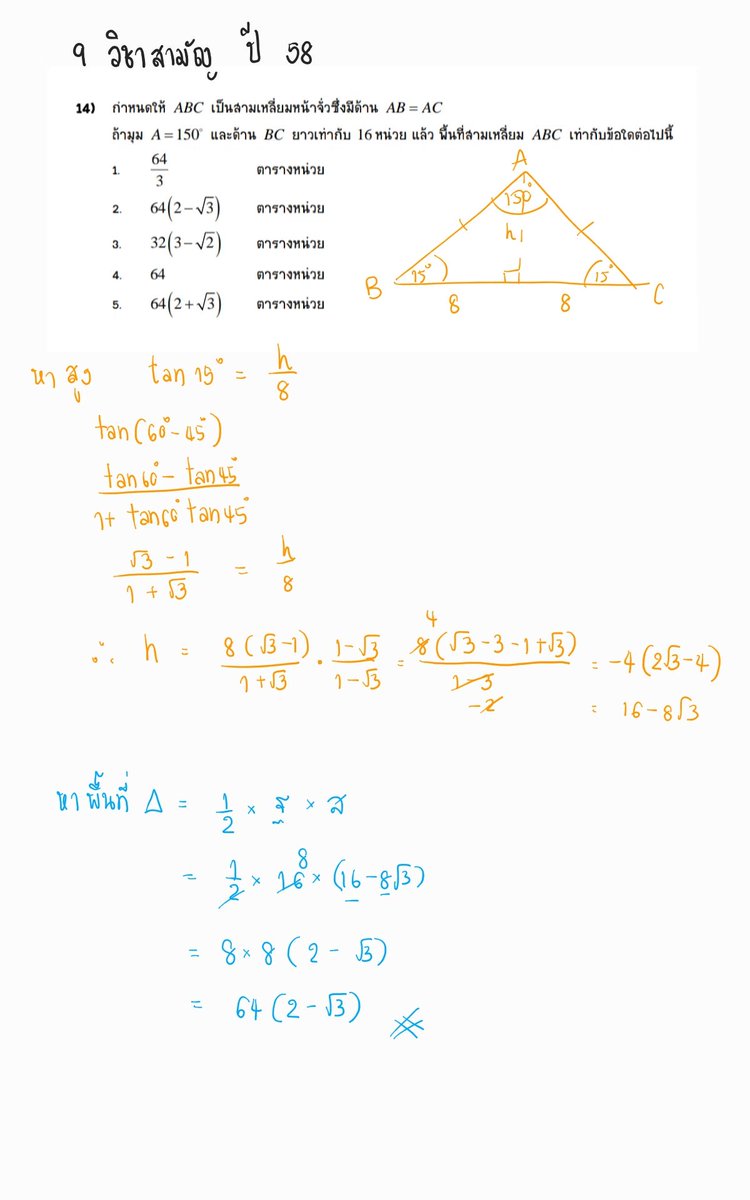 9 วิชาสามัญ ปี 58
14) กำหนดให้ ABC เป็นสามเหลี่ยมหน้าจั่วซึ่งมีด้าน AB = AC
ถ้ามุม A = 150° และด้าน BC ยาวเท่ากับ 16 หน่วย แล้ว พื้นที่สามเหลี่ยม ABC เท่ากับข้อใดต่อไปนี้
1. 64/3 ตารางหน่วย
2. 64(2-√3) ตารางหน่วย
3. 32(3-√2) ตารางหน่วย
4. 64 ตารางหน่วย
5. 64(2+√3) ตารางหน่วย
A
150°
h
B 15° 15° C
8 8
หา สูง tan 15° = h/8
tan(60°-45°)
(tan60° - tan45°)/(1+ tan60° tan45°)
(√3 - 1)/(1 + √3) = h/8
∴ h = 8(√3-1)/(1+√3) · (1-√3)/(1-√3) = 8(√3-3-1+√3)/(1-3) = -4(2√3-4)
4
-2
= 16-8√3
หาพื้นที่ Δ = 1/2 × ฐ × ส
= 1/2 × 16 × (16-8√3)
8
= 8×8(2-√3)
= 64(2-√3)